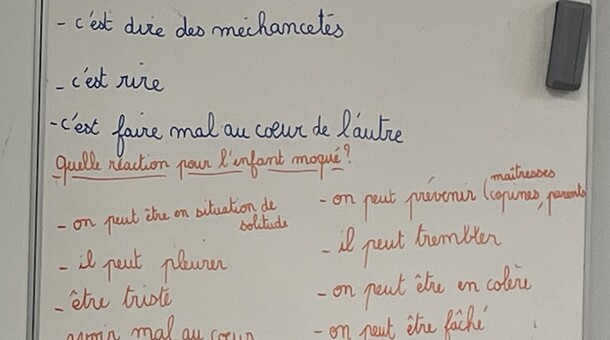 - c'est dire des méchancetés
- c'est rire
- c'est faire mal au cœur de l'autre
Quelle réaction pour l'enfant moqué?
- on peut être en situation de
solitude
- il peut pleurer
- être triste
avoir mal au cœur
maîtresses
- on peut prévenir (copines, parents
- il peut trembler
- on peut être en colère
- on peut être fâché